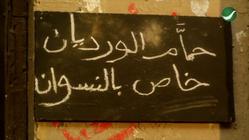 حمّام الورديان
خاص بالنسوان